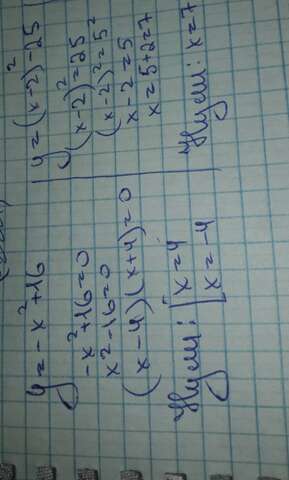 y=-x²+16
-x²+16=0
x²-16=0
(x-4)(x+4)=0
Нули: [x=4
x=-4
y=(x-2)²-25
(x-2)²=25
(x-2)²=5²
x-2=5
x=5+2=7
Нули: x=7